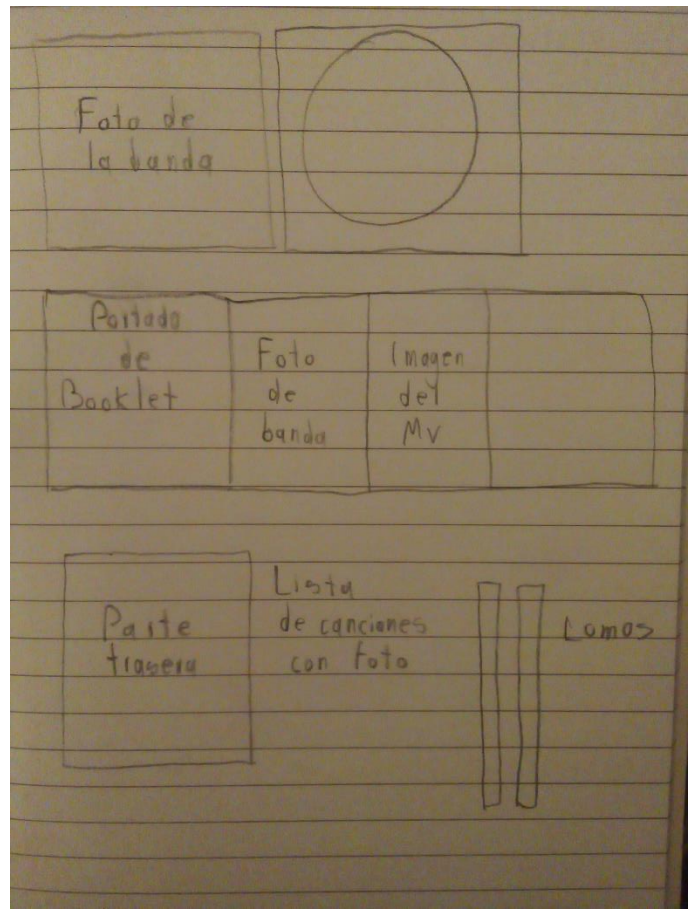 Foto de
la banda
Portada
de
Booklet
Foto
de
banda
Imagen
del
MV
Parte
trasera
Lista
de canciones
con foto
Lomos